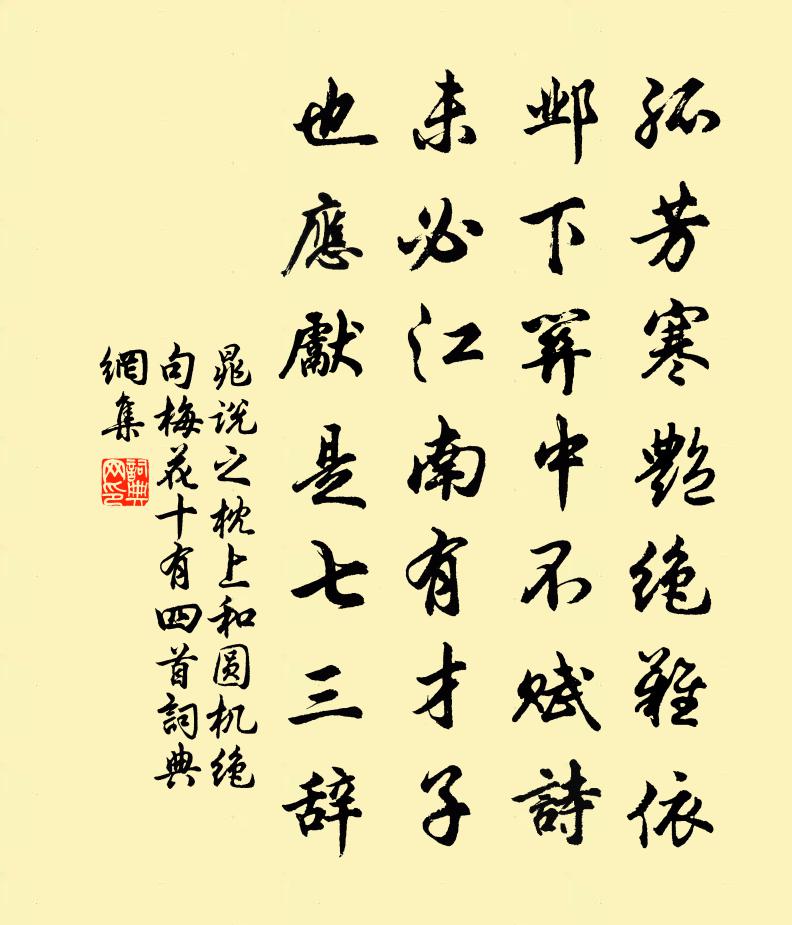 孤芳寒艷绝難依
邺下箳中不赋詩
未必江南有才子
也應獻是七三辞
晁说之枕上和圆机绝
句梅花十有四首詞典
網集
詞典
网印